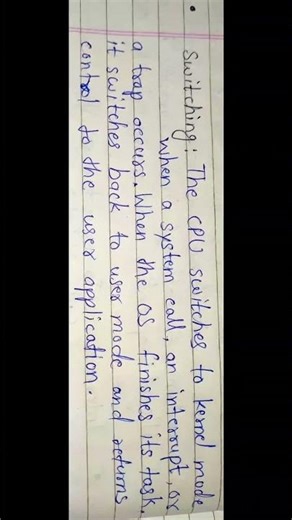 • Switching: The CPU switches to kernel mode
when a system call, an interrupt, or
a trap occurs. When the OS finishes its task,
it switches back to user mode and returns
control to the user application.